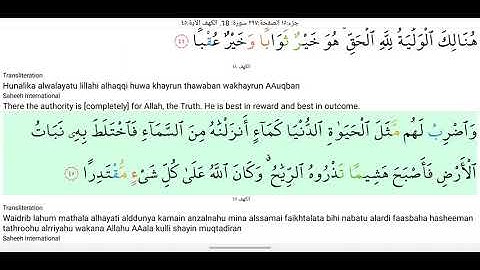 جزء:١٥ الصفحة:٢٩٧ سورة: 18. الكهف الآية:٤٥
هُنَالِكَ الْوَلَٰيَةُ لِلَّهِ الْحَقِّ ۚ هُوَ خَيْرٌ ثَوَابًا وَخَيْرٌ عُقْبًا ٤٤
Transliteration
Hunalika alwalayatu lillahi alhaqqi huwa khayrun thawaban wakhayrun AAuqban
Saheeh International
There the authority is [completely] for Allah, the Truth. He is best in reward and best in outcome.
وَاضْرِبْ لَهُم مَّثَلَ الْحَيَوٰةِ الدُّنْيَا كَمَآءٍ أَنزَلْنَٰهُ مِنَ السَّمَآءِ فَاخْتَلَطَ بِهِۦ نَبَاتُ
الْأَرْضِ فَأَصْبَحَ هَشِيمًا تَذْرُوهُ الرِّيَٰحُ ۗ وَكَانَ اللَّهُ عَلَىٰ كُلِّ شَىْءٍ مُّقْتَدِرًا ٤٥
Transliteration
Waidrib lahum mathala alhayati alddunya kamain anzalnahu mina alssamai faikhtalata bihi nabatu alardi faasbaha hasheeman
tathroohu alrriyahu wakana Allahu AAala kulli shayin muqtadiran
Saheeh International